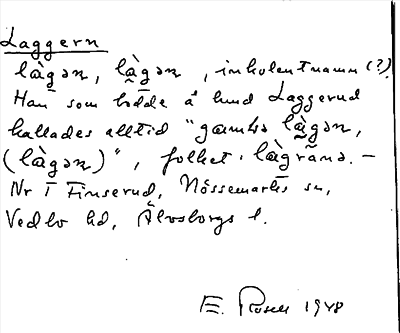 Laggern
là̄gən, là̰gən, inkolentnamn (?).
Han som bodde å lund Laggerud
kallades alltid "gamla là̰gən,
(là̄gən)", folket i là̄grâna. –
Nr I Finserud, Nössemarks sn,
Vedbo hd, Älvsborgs l.
E. Rosell 1948